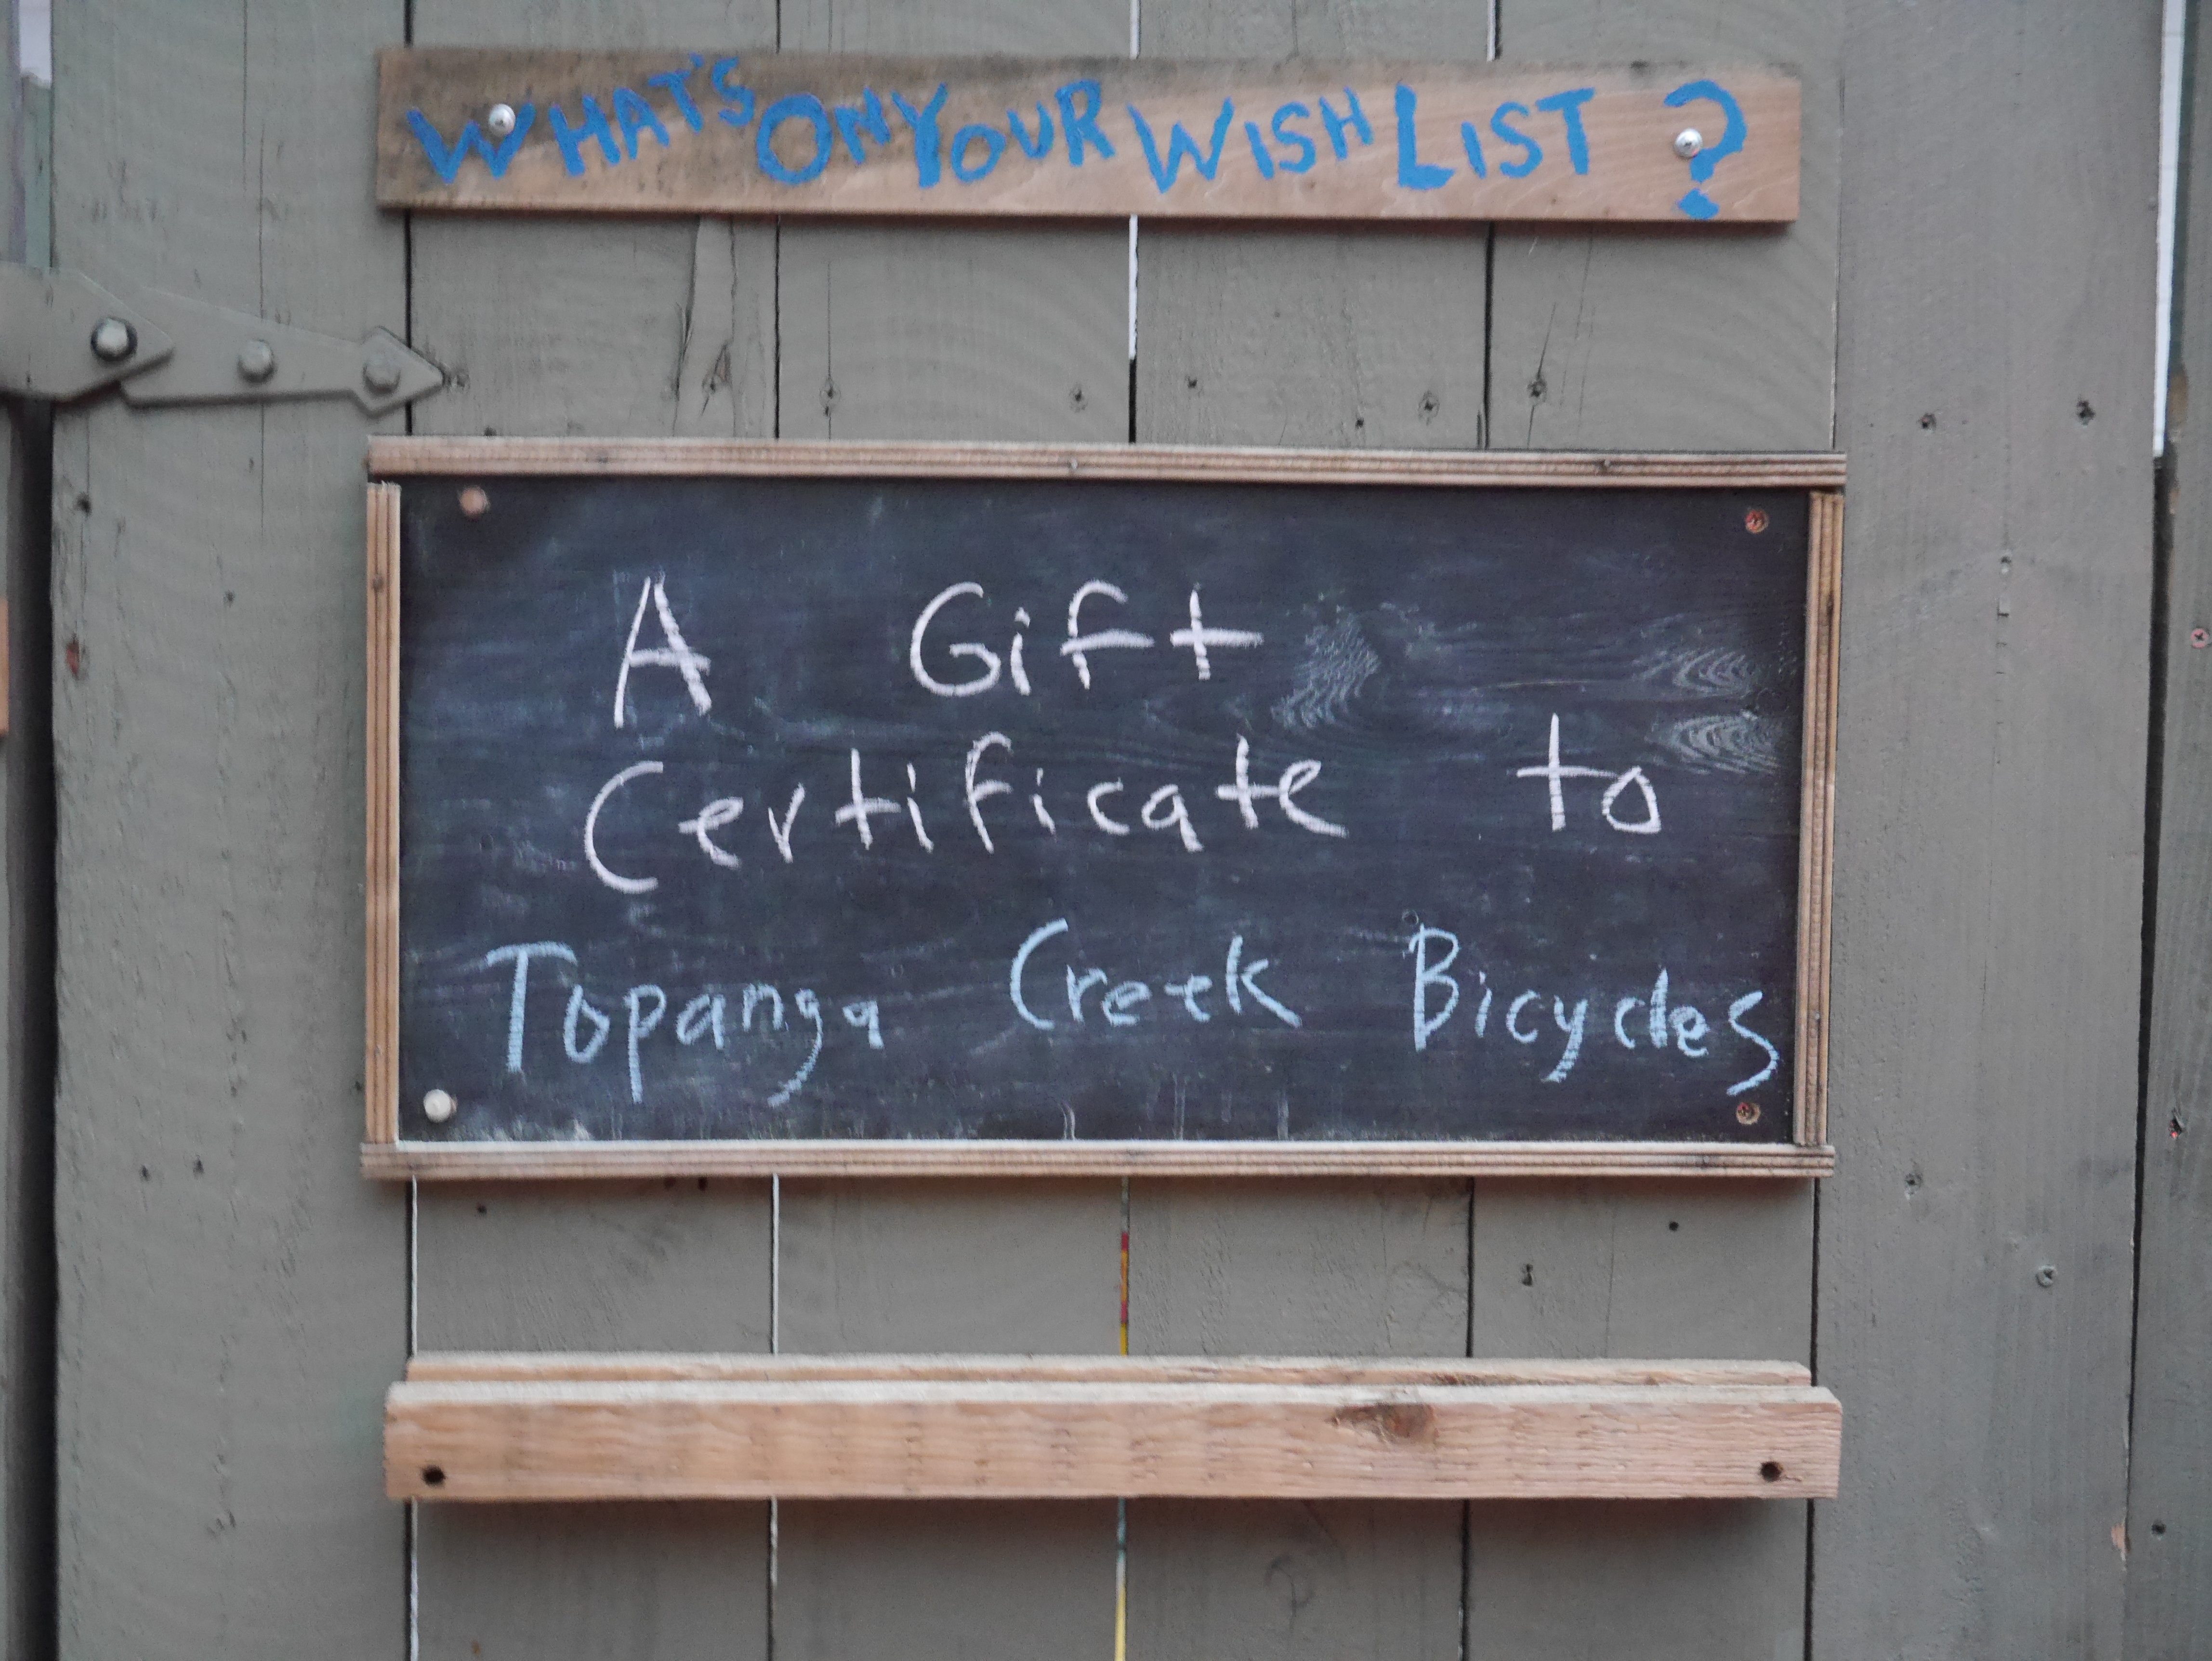 WHAT'S ON YOUR WISH LIST ?
A Gift
Certificate to
Topanga Creek Bicycles